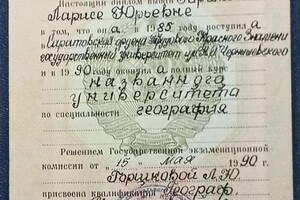 Настоящий диплом выдан
Ларисе Юрьевне
в том, что она в 1985 году поступила в
Саратовский ордена Трудового Красного Знамени
государственный университет им. Н.Г. Чернышевского
и в 1990 году окончила полный курс
названного
университета
по специальности
география
Решением Государственной экзаменационной
комиссии от "15" мая 1990 г.
Л.Ю.
присвоена квалификация Географ.